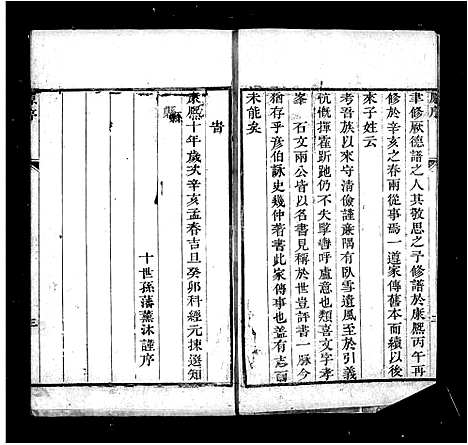 聿修厥德譜之人其敬思之予修譜於康熙丙午再
修於辛亥之春兩從事焉一道家傳舊本而續以後
來子姓云
考吾族以來守清儉謹廉隅有臥雪遺風至於引義
忼慨揮霍斯跪仍不失擊 呼盧意也類喜文字孝
峯 石文兩公皆以名書見稱於世豈評書一
猶存乎彥伯詠史幾仲著書此家傳事也蓋有志而
未能矣
旹
康熙十年歲次辛亥孟春吉旦癸卯科經元揀選知
縣
十世孫藩薰沐謹序
原序
二
原序
三